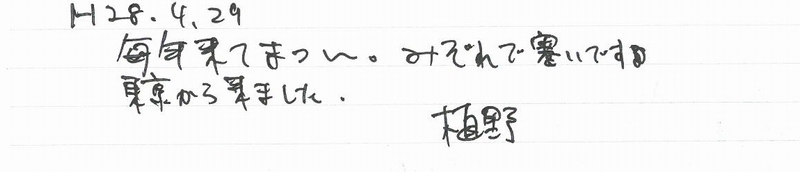 H28.4.29
毎年来てまつい。みぞれで寒いです。
東京から来ました.
植野